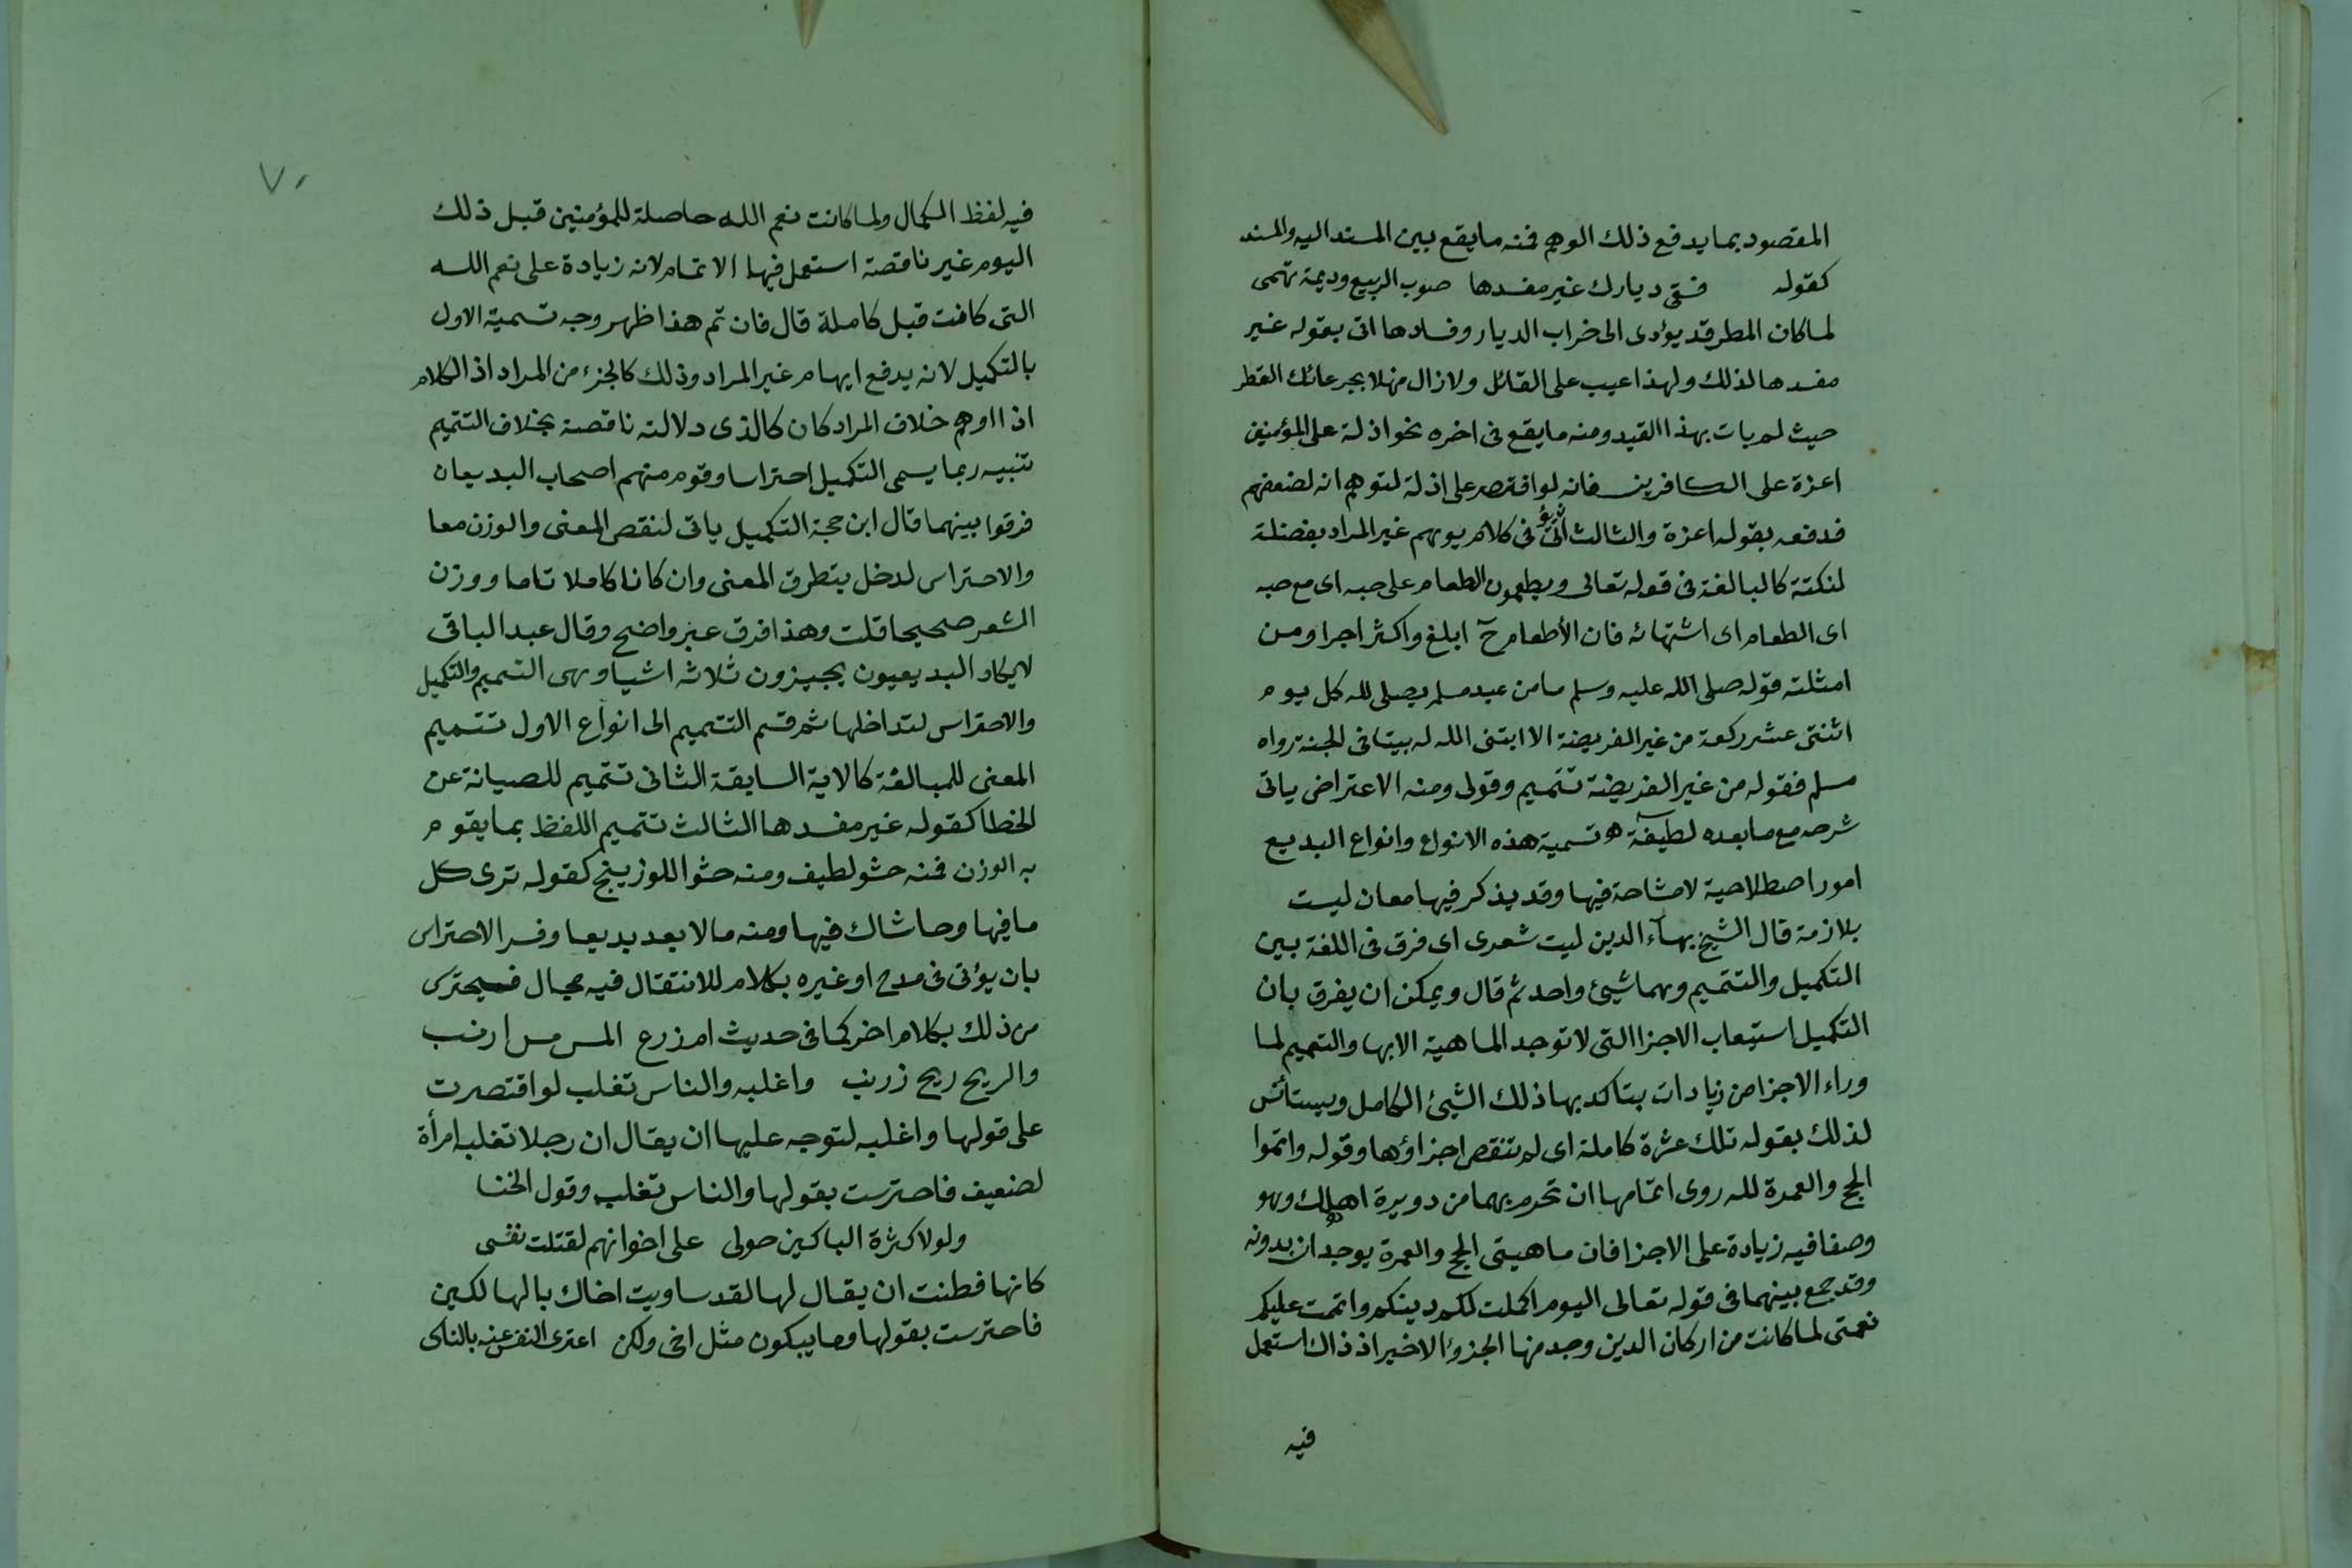 المقصود بما يدفع ذلك الوهم فمنه ما يقع بين المسند اليه والمسند
كقوله فسقى ديارك غير مفسدها صوب الربيع وديمة تهمى
لما كان المطر قد يؤدى الى خراب الديار وفسادها اتى بقوله غير
مفسدها لذلك ولهذا عيب على القائل ولا زال منهلا بجرعائك القطر
حيث لم يات بهذا القيد ومنه ما يقع فى اخره نحو اذلة على المؤمنين
اعزة على الكافرين فانه لو اقتصر على اذلة لتوهم انه لضعفهم
فدفعه بقوله اعزة والثالث ان يؤتى فى كلام يوهم غير المراد بفضلة
لنكتة كالمبالغة فى قوله تعالى ويطعمون الطعام على حبه اى مع حبه
اى الطعام اى اشتهائه فان الأطعام ح ابلغ واكثر اجرا ومن
امثلته قوله صلى الله عليه وسلم ما من عبد مسلم يصلى لله كل يوم
اثنتى عشر ركعة من غير الفريضة الا ابتنى الله له بيتا فى الجنة رواه
مسلم فقوله من غير الفريضة تتميم وقولى ومنه الاعتراض ياتى
شرحه مع ما بعده لطيفة تسمية هذه الانواع وانواع البديع
امور اصطلاحية لا مشاحة فيها وقد يذكر فيها معان ليست
بلازمة قال الشيخ بهآء الدين ليت شعرى اى فرق فى اللغة بين
التكميل والتتميم وهما شيئ واحد ثم قال ويمكن ان يفرق بان
التكميل استيعاب الاجزا التى لا توجد الماهية الا بها والتتميم لما
وراء الاجزا من زيادات يتاكد بها ذلك الشيئ الكامل ويستأنس
لذلك بقوله تلك عشرة كاملة اى لم تنقص اجزاؤها وقوله واتموا
الحج والعمرة لله روى اتمامها ان تحرم بهما من دويرة اهلك وهو
وصفا فيه زيادة على الاجزا فان ماهيتى الحج والعمرة يوجدان بدونه
وقد جمع بينهما فى قوله تعالى اليوم اكملت لكم دينكم واتممت عليكم
نعمتى لما كانت من اركان الدين وجد منها الجزؤ الاخير اذ ذاك استعمل
فيه
٧٠
فيه لفظ الكمال ولما كانت نعم الله حاصلة للمؤمنين قبل ذلك
اليوم غير ناقصة استعمل فيها الاتمام لانه زيادة على نعم الله
التى كانت قبل كاملة قال فان تم هذا ظهر وجه تسمية الاول
بالتكميل لانه يدفع ايهام غير المراد وذلك كالجزء من المراد اذ الكلام
اذا اوهم خلاف المراد كان كالذى دلالته ناقصة بخلاف التتميم
تنبيه ربما يسمى التكميل احتراسا وقوم منهم اصحاب البديعان
فرقوا بينهما قال ابن حجة التكميل ياتى لنقص المعنى والوزن معا
والاحتراس لدخل يتطرق المعنى وان كانا كاملا تاما ووزن
الشعر صحيحا قلت وهذا فرق غير واضح وقال عبد الباقى
لا يكاد البديعيون يجيزون ثلاثه اشيا وهى التتميم والتكميل
والاحتراس لتداخلها ثم قسم التتميم الى انواع الاول تتميم
المعنى للمبالغة كالاية السابقة الثانى تتميم للصيانة عن
الخطا كقوله غير مفسدها الثالث تتميم اللفظ بما يقوم
به الوزن فمنه حشو لطيف ومنه حشو اللوزينج كقوله ترى كل
ما فيها وحاشاك فيها ومنه ما لا يعد بديعا وفسر الاحتراس
بان يؤتى فى مدح او غيره بكلام للانتقال فيه مجال فيحترس
من ذلك بكلام اخر كما فى حديث ام زرع المس مس ارنب
والريح ريح زرنب واغلبه والناس تغلب لو اقتصرت
على قولها واغلبه لتوجه عليها ان يقال ان رجلا تغلبه امرأة
لضعيف فاحترست بقولها والناس تغلب وقول الخنسا
ولولا كثرة الباكين حولى على اخوانهم لقتلت نفسى
كانها فطنت ان يقال لها لقد ساويت اخاك بالهالكين
فاحترست بقولها وما يبكون مثل اخى ولكن اعزى النفس عنه بالتاسى